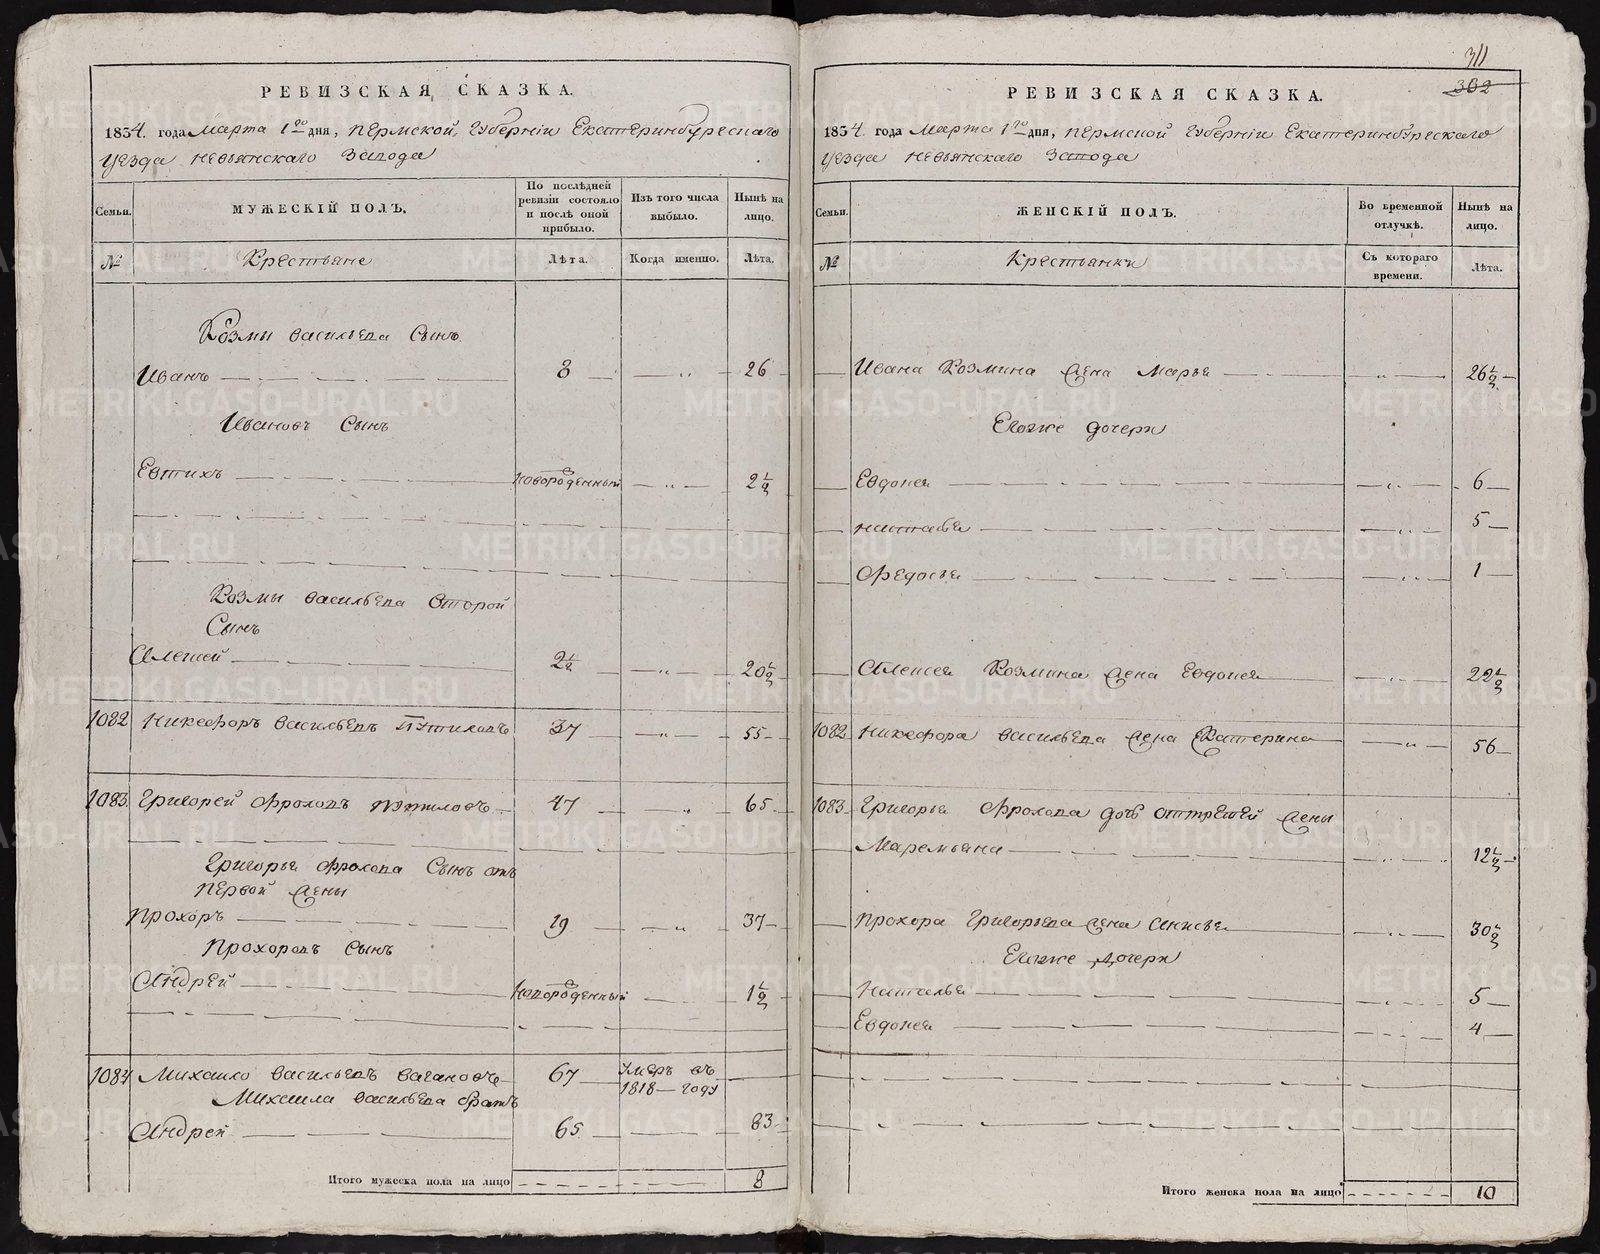 РЕВИЗСКАЯ СКАЗКА.
1834. года Марта 1го дня, Пермской Губерніи Екатеринбургскаго
уезда Невьянскаго Завода
Семьи.
МУЖЕСКІЙ ПОЛЪ.
По послѣдней ревизіи состояло и послѣ оной прибыло.
Изъ того числа выбыло.
Нынѣ на лицо.
№
Крестьяне
Лѣта.
Когда именно.
Лѣта.
Козмы Васильева Сынъ
Иванъ 8 " 26
Ивановъ Сынъ
Евтихъ новорожденный " 2½
Козмы Васильева второй
Сынъ
Алексей 2½ " 20½
1082 Никефоръ Васильевъ Путиловъ 37 " 55
1083 Григорей Фроловъ Путиловъ 47 " 65
Григорья Фролова Сынъ отъ
первой жены
Прохоръ 19 " 37
Прохоровъ Сынъ
Андрей новорожденный 1½
1084 Михаило Васильевъ Вагановъ 67 умеръ въ 1818 году
Михаила Васильева братъ
Андрей 65 83
Итого мужеска пола на лицо 8
311
302
РЕВИЗСКАЯ СКАЗКА.
1834. года Марта 1го дня, Пермской Губерніи Екатеринбургскаго
уезда Невьянскаго Завода
Семьи.
ЖЕНСКІЙ ПОЛЪ.
Во временной отлучкѣ.
Нынѣ на лицо.
№
Крестьянки
Съ котораго времени.
Лѣта.
Ивана Козмина жена Марья " 26½
Егоже дочери
Евдокея " 6
Наталья " 5
Федосья " 1
Алексея Козмина жена Евдокея " 22½
1082 Никефора Васильева жена Екатерина " 56
1083 Григорья Фролова дочь оттретей жены
Маремьяна " 12½
Прохора Григорьева жена Анисья " 30½
Егоже Дочери
Наталья " 5
Евдокея 4
Итого женска пола на лицо 10
METRIKI.GASO-URAL.RU